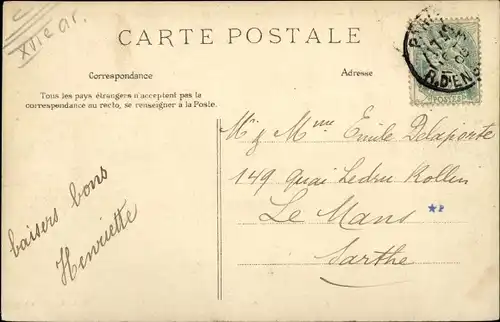 XVIe ar.
CARTE POSTALE
Correspondance
Adresse
Tous les pays étrangers n'acceptent pas la
correspondance au recto, se renseigner à la Poste.
PARIS
R. D'ENG
POSTES
M. & Mme Emile Delaporte
149 Quai Ledru Rollin
Le Mans
Sarthe
baisers bons
Henriette